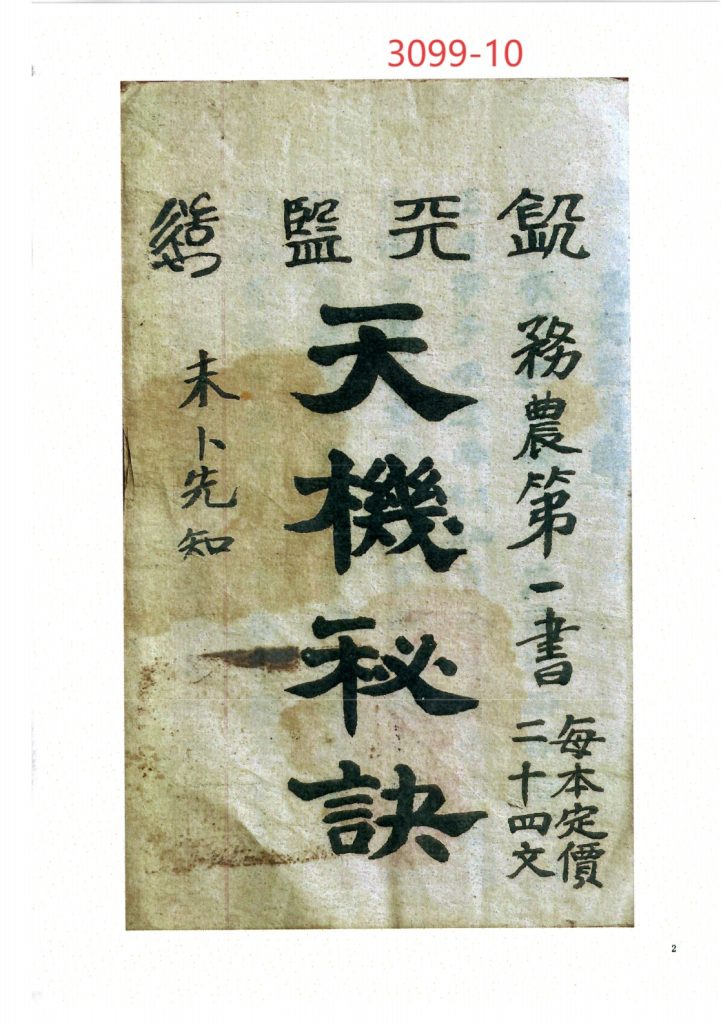 3099-10
務農第一書
每本定價
二十四文
天機秘訣
未卜先知
2